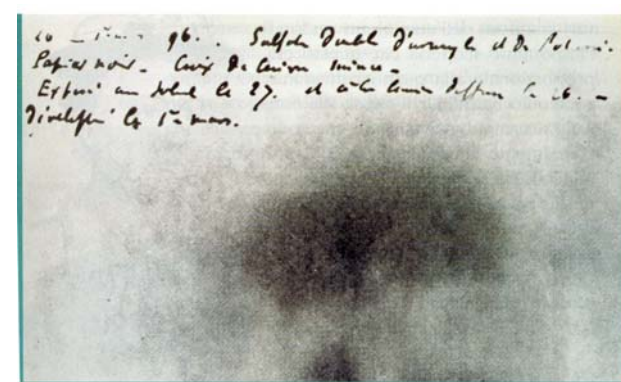 96. Sulfate Double d'uranyle et de Potassium
Papier noir. Croix de Cuivre mince.
Exposé au Soleil le 27. et à la lumière diffuse le 26.
Développé le 1er mars.